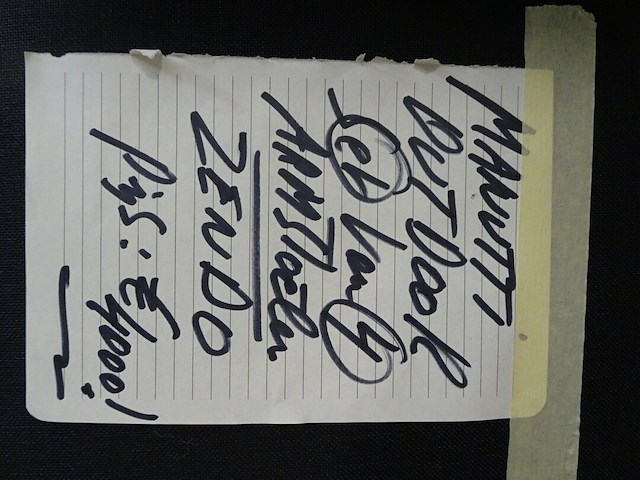 MARUTTI
OUTDOOR
Set van (4)
ARMSTOELEN
ZENDO
Prijs: € 4000.!